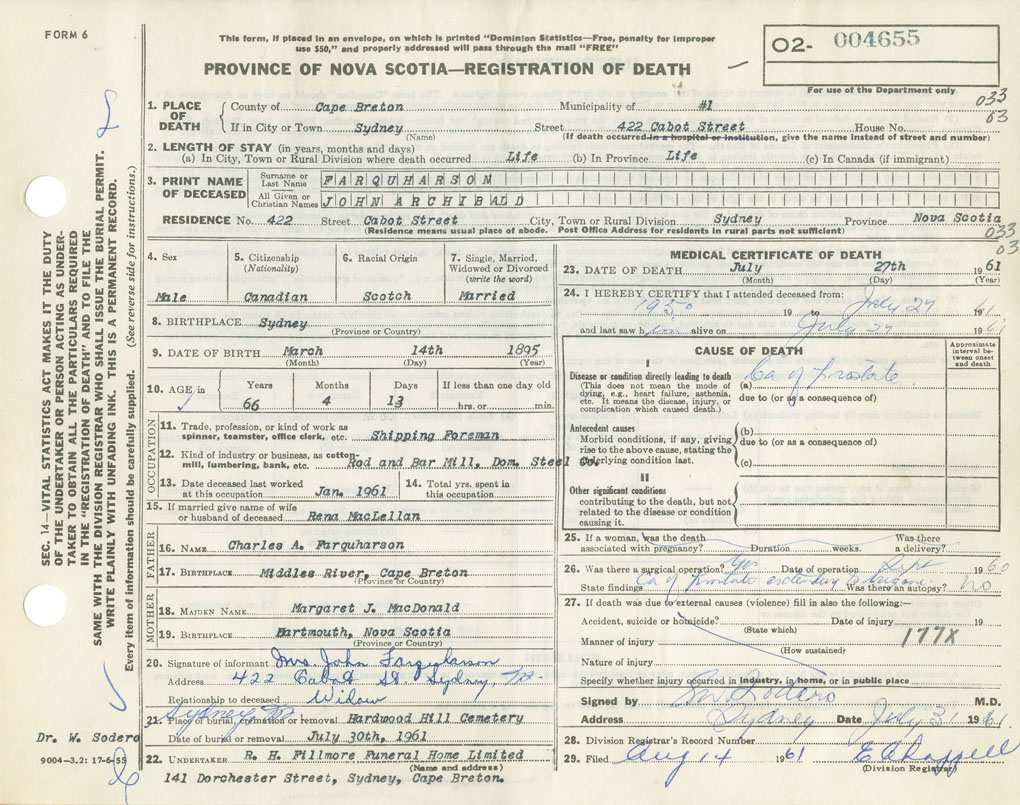 FORM 6
This form, if placed in an envelope, on which is printed "Dominion Statistics—Free, penalty for improper
use $50," and properly addressed will pass through the mail "FREE"
O2- 004655
PROVINCE OF NOVA SCOTIA—REGISTRATION OF DEATH
For use of the Department only
033
03
1. PLACE OF DEATH
County of Cape Breton Municipality of #1
If in City or Town Sydney Street 422 Cabot Street House No.
(Name) (If death occurred in a hospital or institution, give the name instead of street and number)
2. LENGTH OF STAY (in years, months and days)
(a) In City, Town or Rural Division where death occurred Life (b) In Province Life (c) In Canada (if immigrant)
3. PRINT NAME OF DECEASED
Surname or Last Name FARQUHARSON
All Given or Christian Names JOHN ARCHIBALD
RESIDENCE No. 422 Street Cabot Street City, Town or Rural Division Sydney Province Nova Scotia
(Residence means usual place of abode. Post Office Address for residents in rural parts not sufficient)
033
03
4. Sex Male
5. Citizenship (Nationality) Canadian
6. Racial Origin Scotch
7. Single, Married, Widowed or Divorced (write the word) Married
8. BIRTHPLACE Sydney
(Province or Country)
9. DATE OF BIRTH March 14th 1895
(Month) (Day) (Year)
10. AGE in Years Months Days If less than one day old
66 4 13 hrs. or min.
OCCUPATION
11. Trade, profession, or kind of work as
spinner, teamster, office clerk, etc. Shipping Foreman
12. Kind of industry or business, as cotton-
mill, lumbering, bank, etc. Rod and Bar Mill, Dom. Steel Co.
13. Date deceased last worked
at this occupation Jan. 1961
14. Total yrs. spent in
this occupation
15. If married give name of wife
or husband of deceased Rena MacLellan
FATHER
16. NAME Charles A. Farquharson
17. BIRTHPLACE Middles River, Cape Breton
(Province or Country)
MOTHER
18. MAIDEN NAME Margaret J. MacDonald
19. BIRTHPLACE Dartmouth, Nova Scotia
(Province or Country)
20. Signature of informant Mrs. John Farquharson
Address 422 Cabot St. Sydney, N.S.
Relationship to deceased Widow
Sydney NS
21. Place of burial, cremation or removal Hardwood Hill Cemetery
Date of burial or removal July 30th, 1961
22. UNDERTAKER R. H. Fillmore Funeral Home Limited
(Name and address)
141 Dorchester Street, Sydney, Cape Breton.
MEDICAL CERTIFICATE OF DEATH
23. DATE OF DEATH July 27th 1961
(Month) (Day) (Year)
24. I HEREBY CERTIFY that I attended deceased from:
1950 19 to July 27 1961
and last saw him alive on July 27 1961
CAUSE OF DEATH
Approximate interval between onset and death
I
Disease or condition directly leading to death
(This does not mean the mode of
dying, e.g., heart failure, asthenia,
etc. It means the disease, injury, or
complication which caused death.)
(a) Ca of prostate
due to (or as a consequence of)
Antecedent causes
Morbid conditions, if any, giving
rise to the above cause, stating the
underlying condition last.
(b)
due to (or as a consequence of)
(c)
II
Other significant conditions
contributing to the death, but not
related to the disease or condition
causing it.
25. If a woman, was the death Was there
associated with pregnancy? Duration weeks. a delivery?
26. Was there a surgical operation? Yes Date of operation Sept 1960
State findings Ca of prostate Was there an autopsy? No
27. If death was due to external causes (violence) fill in also the following:—
Accident, suicide or homicide? Date of injury 19
(State which)
177X
Manner of injury
(How sustained)
Nature of injury
Specify whether injury occurred in industry, in home, or in public place
Signed by W Sodero M.D.
Address Sydney Date July 31 1961
28. Division Registrar's Record Number
29. Filed Aug 14 1961
(Division Registrar)
SEC. 14—VITAL STATISTICS ACT MAKES IT THE DUTY
OF THE UNDERTAKER OR PERSON ACTING AS UNDER-
TAKER TO OBTAIN ALL THE PARTICULARS REQUIRED
IN THE "REGISTRATION OF DEATH" AND TO FILE THE
SAME WITH THE DIVISION REGISTRAR WHO SHALL ISSUE THE BURIAL PERMIT.
WRITE PLAINLY WITH UNFADING INK. THIS IS A PERMANENT RECORD.
Every item of information should be carefully supplied. (See reverse side for instructions.)
Dr. W. Sodero
9004-3.2: 17-6-55